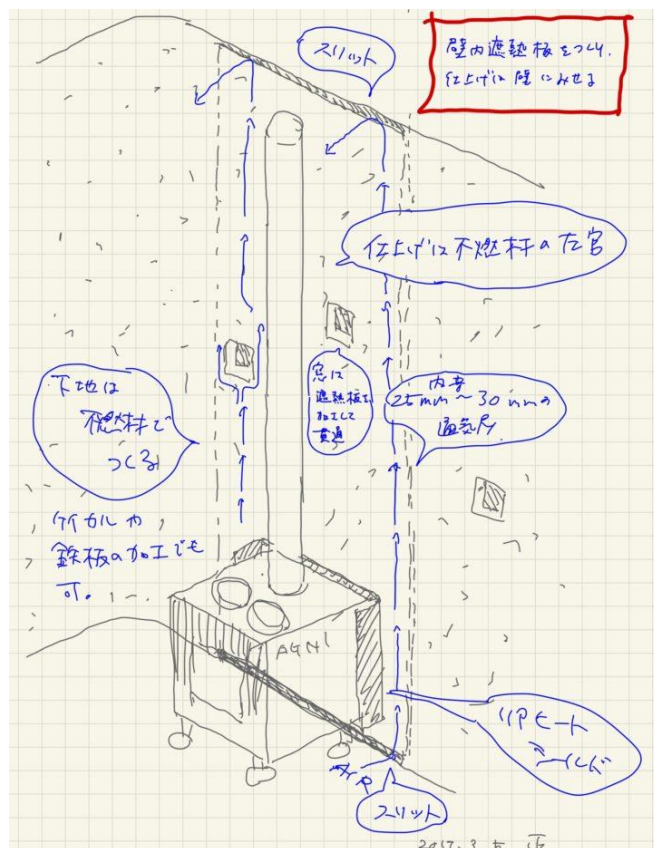 スリット
壁内遮熱板をつくり、
仕上げは壁にみせる
仕上げは不燃材の左官
下地は
不燃材で
つくる
窓は
遮熱板を
加工して
貫通
内寺
25mm〜30mmの
通気層
ケイカルや
鉄板の加工でも
可。
AGNI
リアヒート
シールド
AIR
スリット